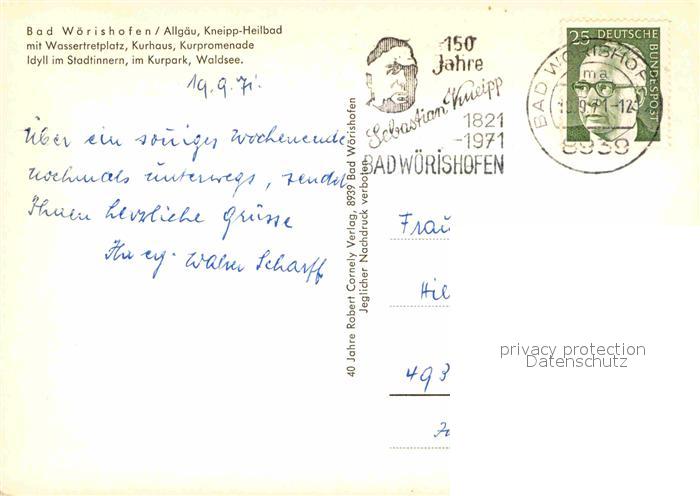 Bad Wörishofen / Allgäu, Kneipp-Heilbad
mit Wassertretplatz, Kurhaus, Kurpromenade
Idyll im Stadtinnern, im Kurpark, Waldsee.
19.9.71.
Über ein sonniges Wochenende
nochmals unterwegs, sendet
Ihnen herzliche Grüsse
Walter Scharff
40 Jahre Robert Cornely Verlag, 8939 Bad Wörishofen
Jeglicher Nachdruck verboten
150
Jahre
Sebastian Kneipp
1821
-1971
BAD WÖRISHOFEN
25 DEUTSCHE
BUNDESPOST
BAD WÖRISHOF
ma
9.71-12
8939
Frau
Hil
493
privacy protection
Datenschutz